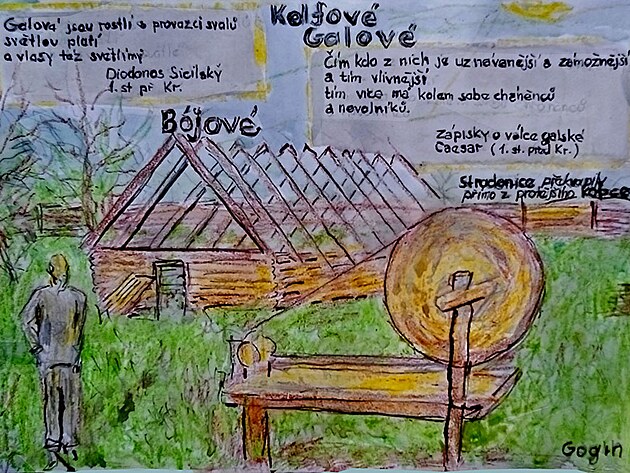 Keltové
Galové
Galová jsou rostlí s provazci svalů
světlou pletí
a vlasy též světlými
Diodonos Sicilský
1. st př Kr.
Čím kdo z nich je uznávanější a zámožnější
a tím vlivnější
tím více má kolem sebe chráněnců
a nevolníků.
Zápisky o válce galské
Caesar (1. st. před Kr.)
Bójové
Stradonice překvapily
přímo z protějšího kopce
Gogin